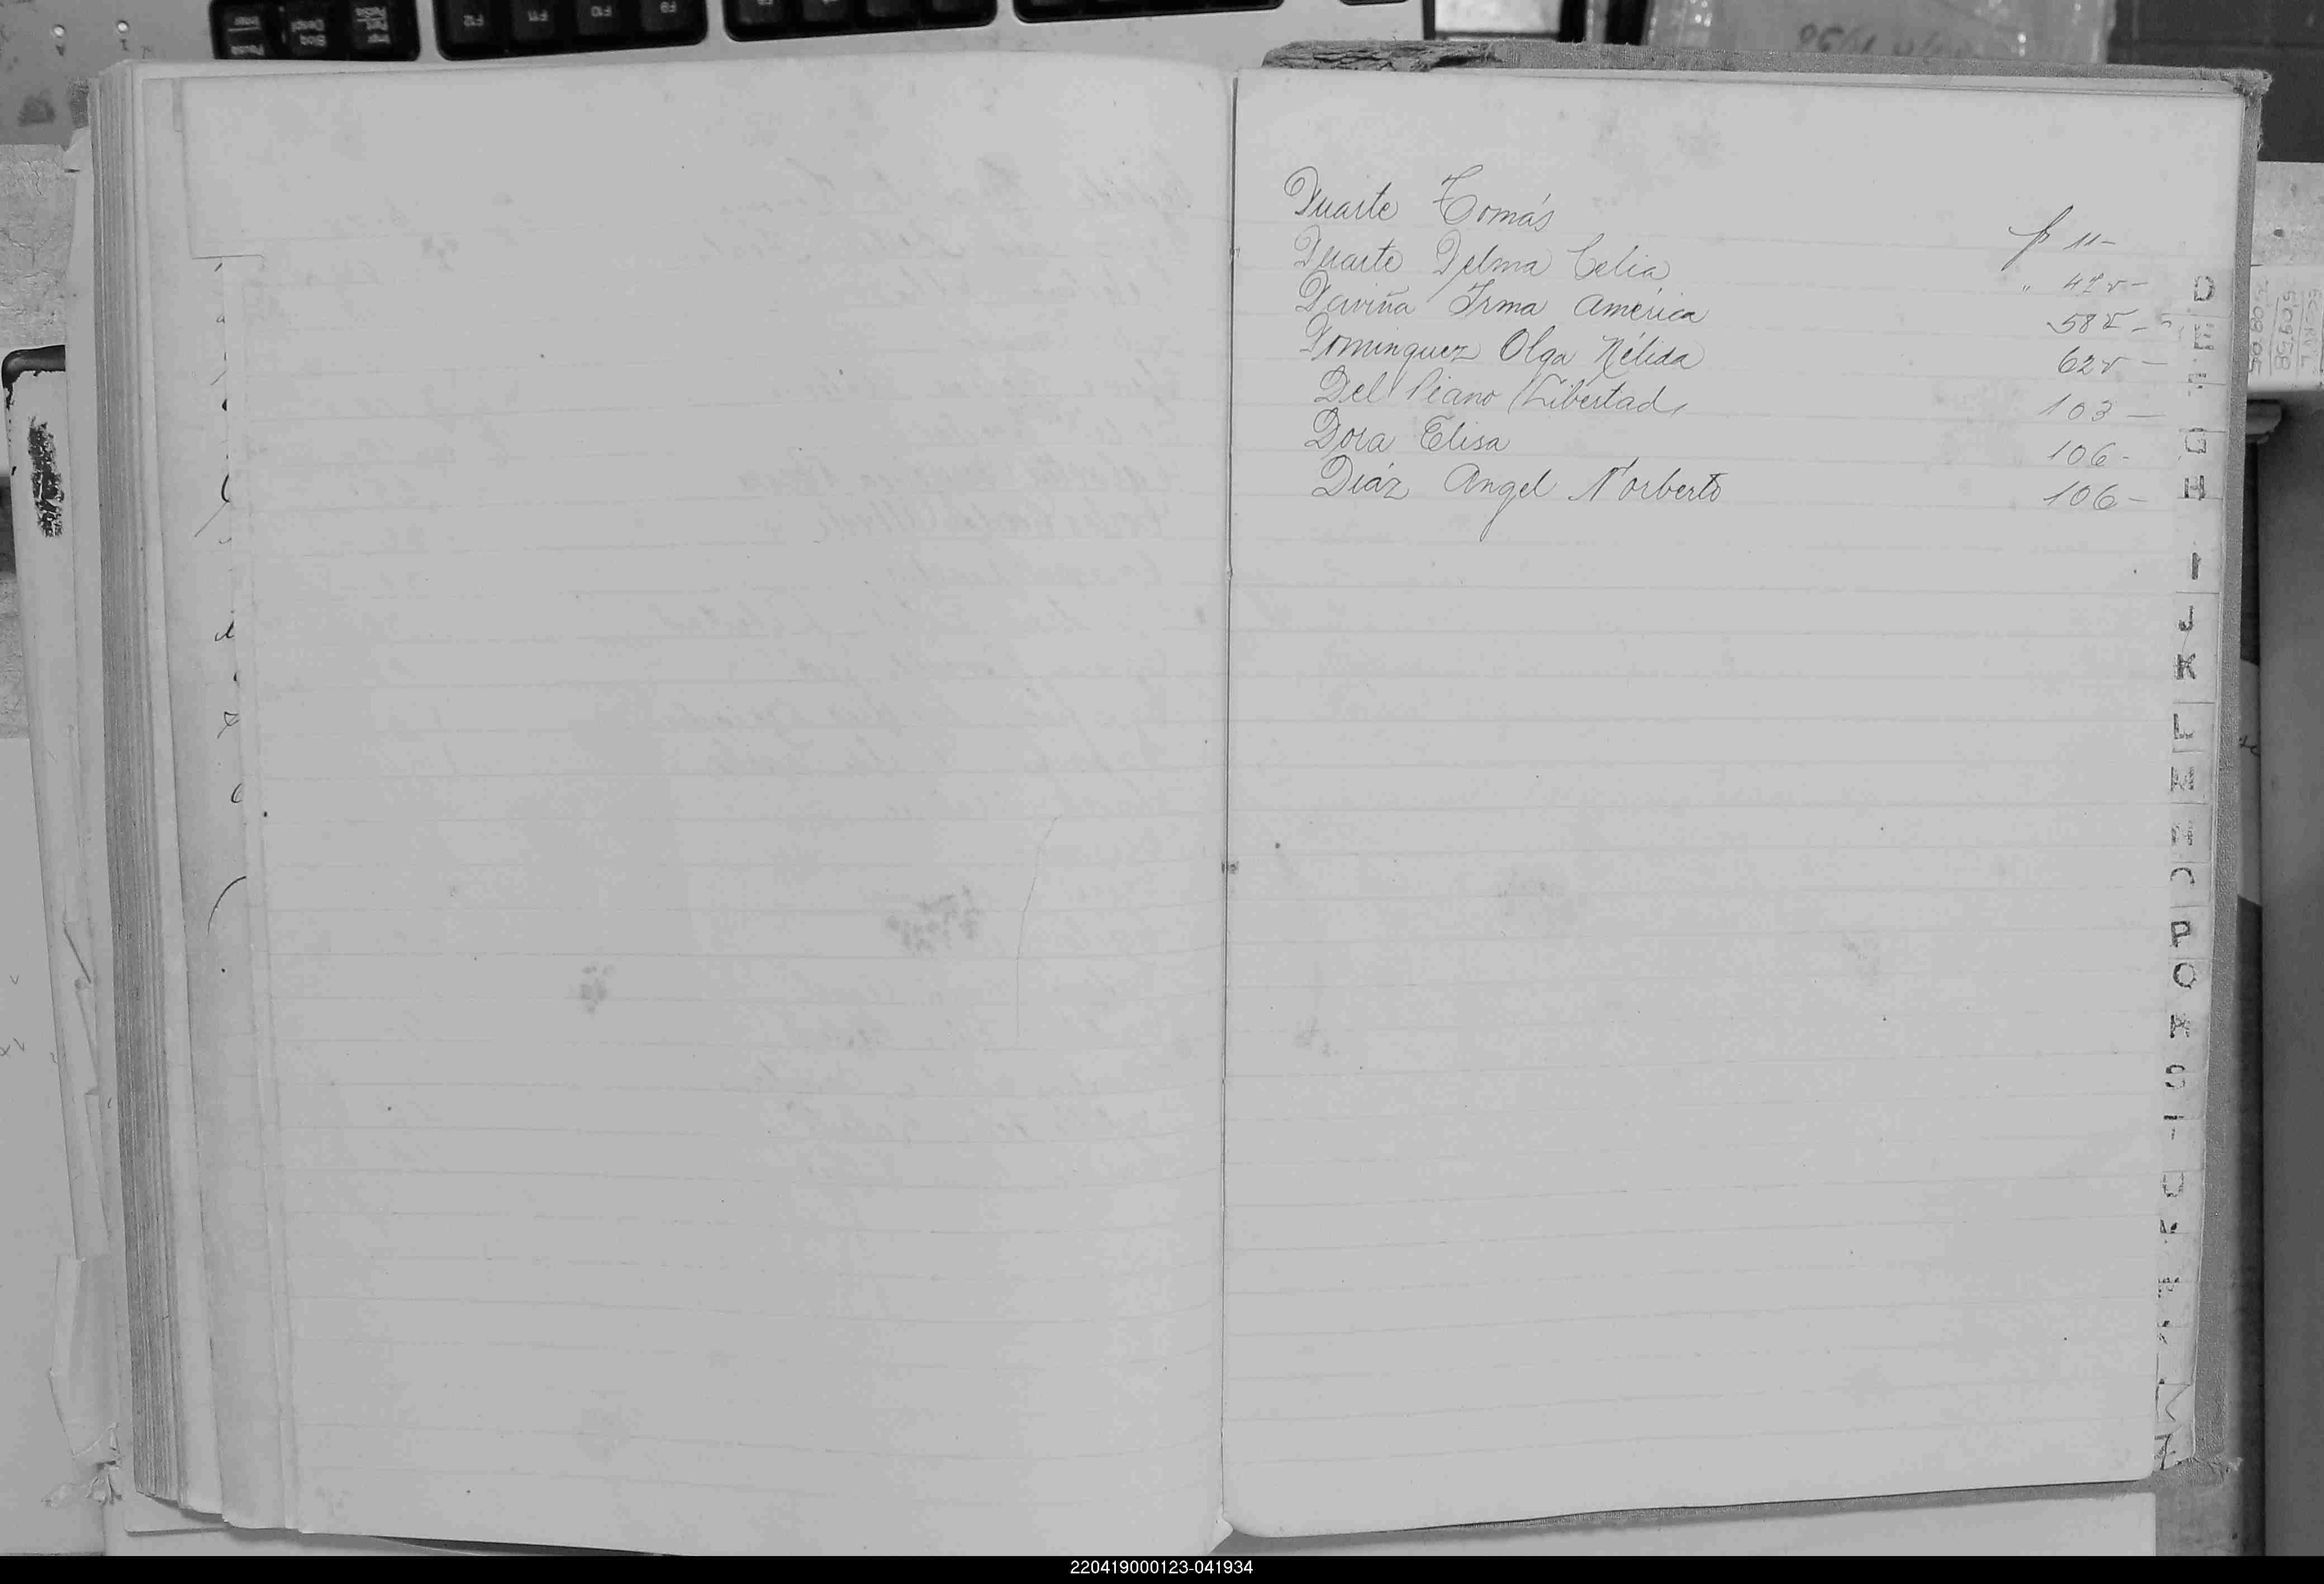 Duarte Tomás fs 11-
Duarte Delma Celia " 47v-
Derviña Irma América 58v-
Dominguez Olga Nélida 62v-
Del Piano Libertad 103-
Dora Elisa 106-
Diáz Angel Norberto 106-
D
H
I
J
K
L
P
Q
R
S
T
220419000123-041934